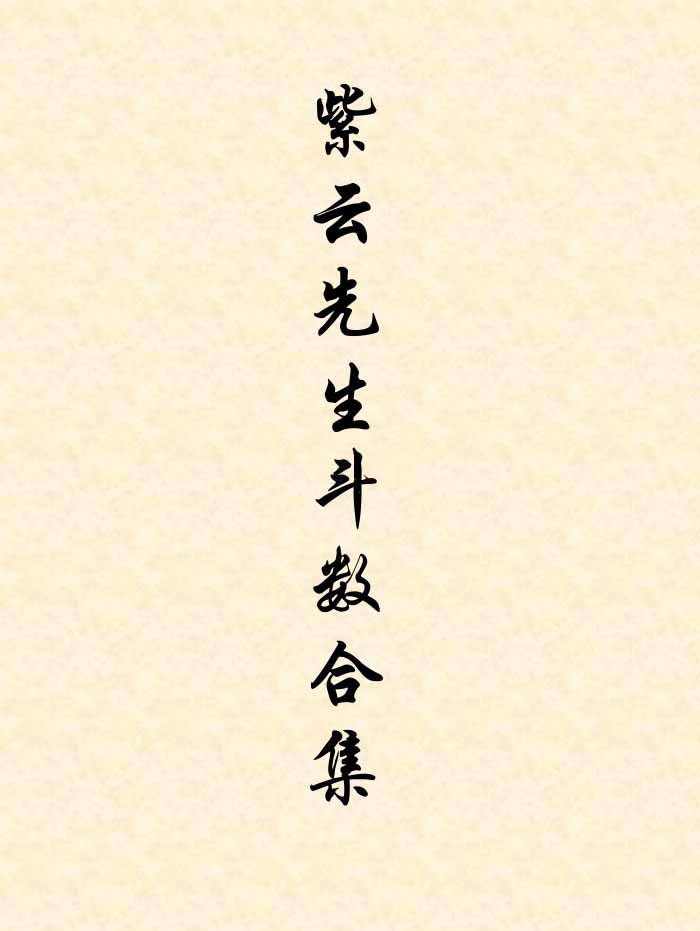 紫云先生斗数合集